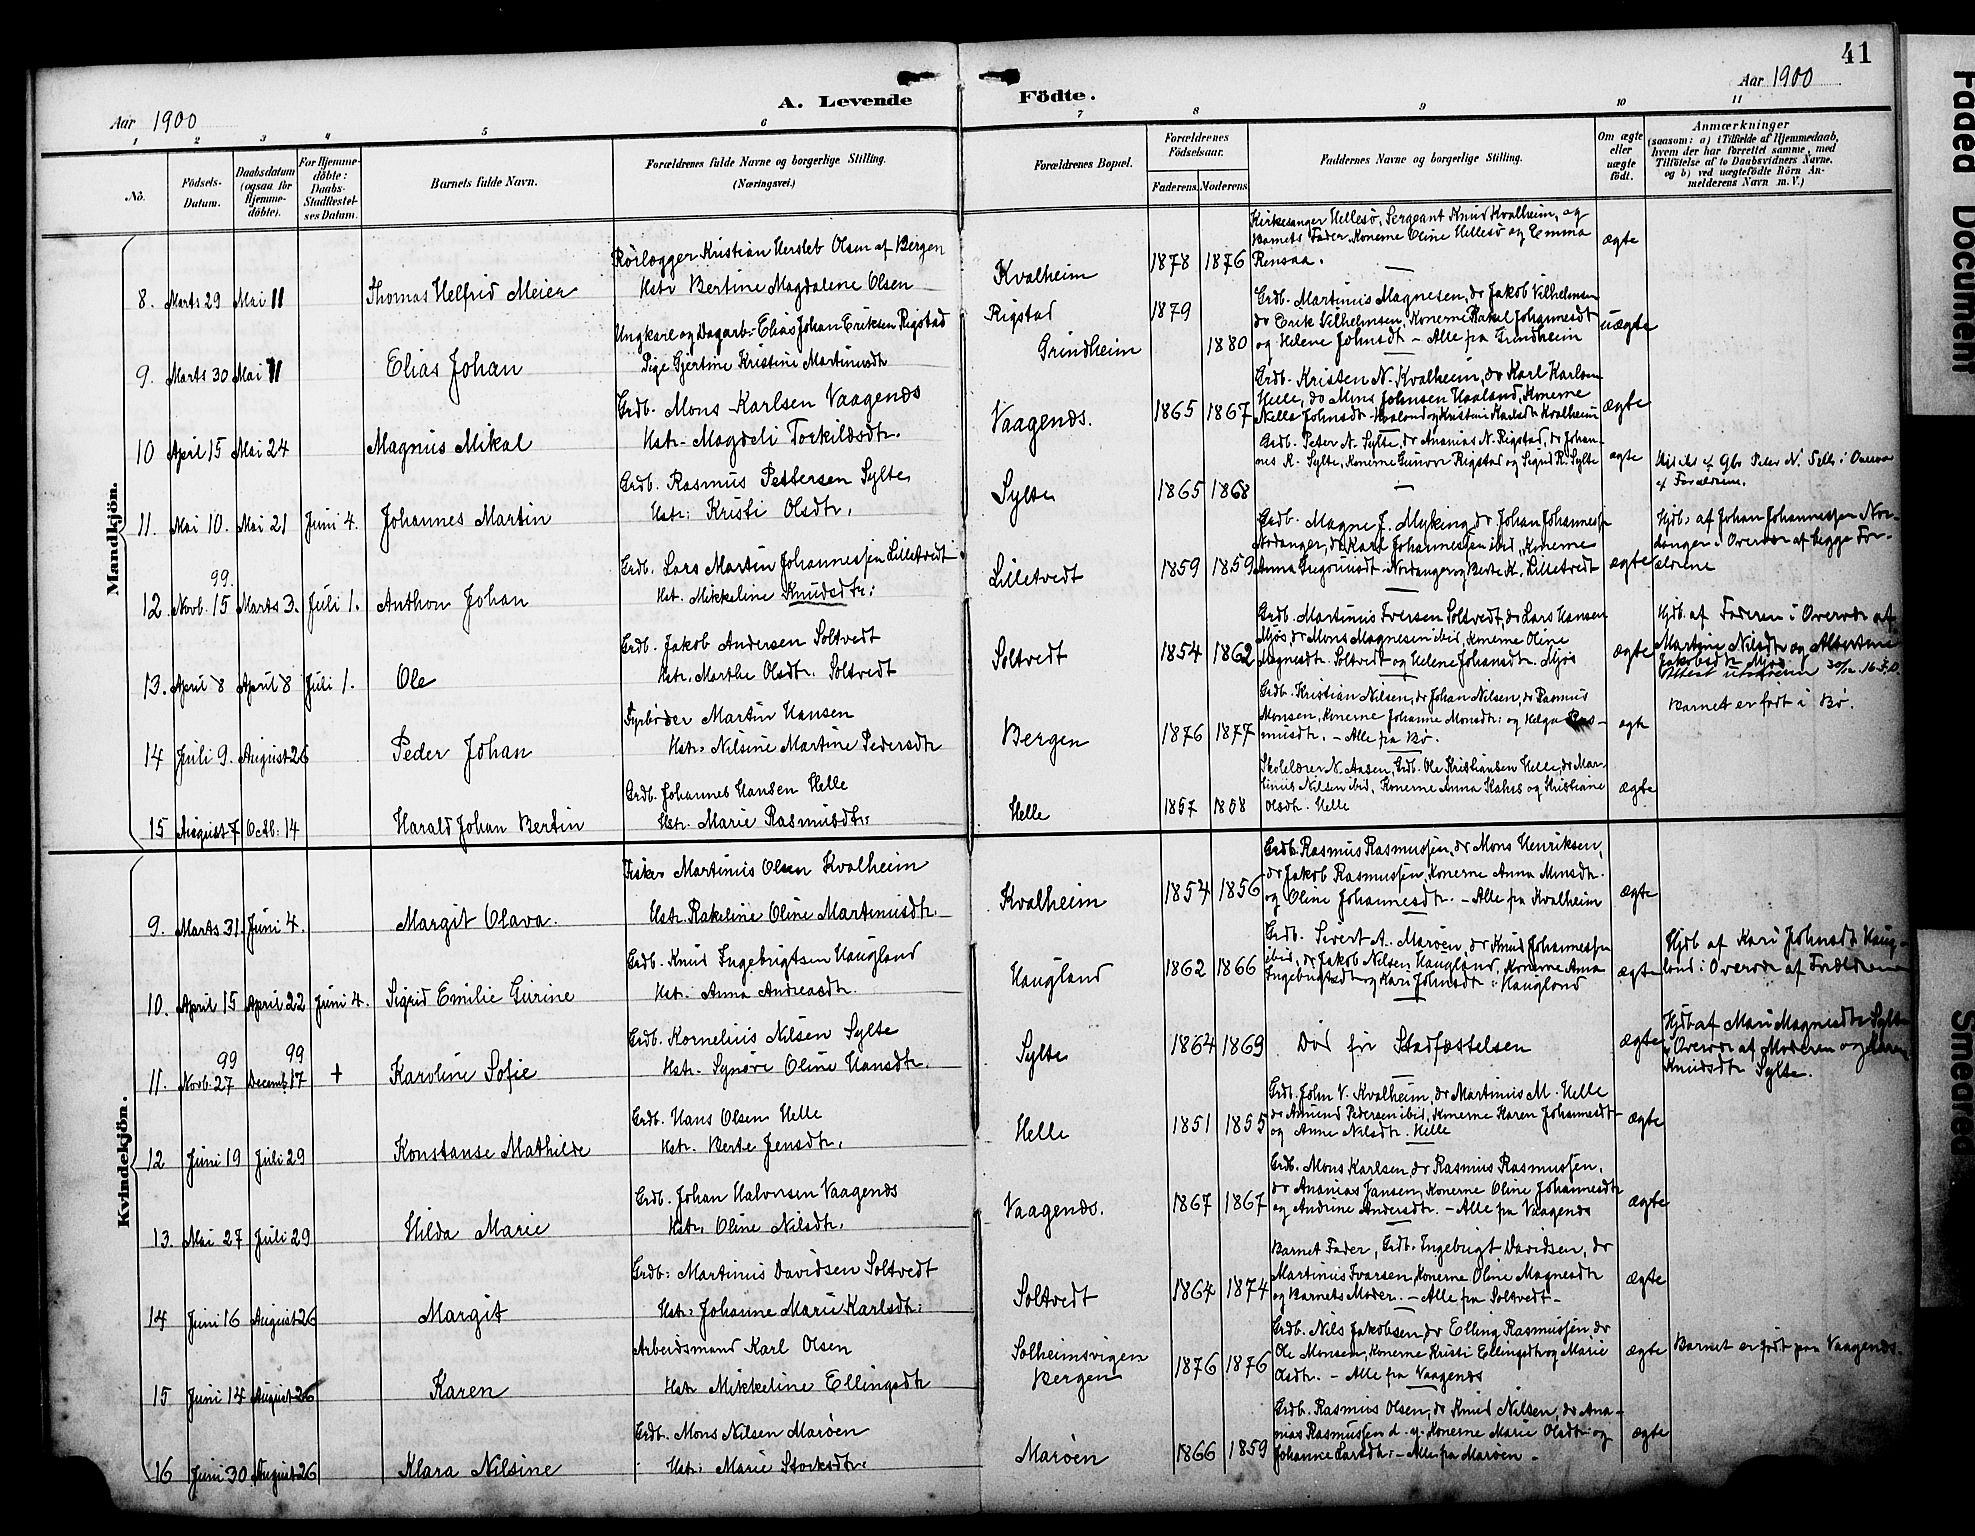 41
Aar 1900
A. Levende
Födte.
Aar 1900
1 2 3 4 5 6 7 8 9 10 11
No.
Födsels-Datum.
Daabsdatum (ogsaa for Hjemme-döbte).
For Hjemme-döbte: Daabs-Stadfestel-ses Datum.
Barnets fulde Navn.
Forældrenes fulde Navne og borgerlige Stilling. (Næringsvei.)
Forældrenes Bopæl.
Forældrenes Födselsaar.
Faderens. Moderens.
Faddernes Navne og borgerlige Stilling.
Om ægte eller uægte födt.
Anmærkninger
(saasom: a) i Tilfælde af Hjemmedaab, hvem der har forrettet samme, med Tilföielse af to Daabsvidners Navne. og b) ved uægtefödte Börn Anmelderens Navn m. V.)
Mandkjön.
8. Marts 29 Mai 11 Thomas Helfrid Meier
Rörlægger Kristian Hersleb Olsen af Bergen
Hstr Bertine Magdalene Olsen
Kvalheim 1878 1876
Kirkesanger Hellesö, Sergeant Knud Kvalheim, og
Barnets Fader, Konerne Oline Hellesö og Emma
Rensaa.
ægte
9. Marts 30 Mai 11 Elias Johan
Ungkarl og Dagarb. Elias Johan Eriksen Rigstad
Pige Gjertine Kristine Martinusdtr
Rigstad 1879
Grindheim 1880
Grdb. Martinus Magnesen, do Jakob Vilhelmsen
do Erik Vilhelmsen, Konerne Rakel Johannesdtr
og Helene Johnsdtr - Alle fra Grindheim
uægte
10 April 15 Mai 24 Magnus Mikal
Grdb. Mons Karlsen Vaagenæs
Hstr. Magdeli Torkildsdtr.
Vaagenæs. 1865 1867
Grdb. Kristen N. Kvalheim, do Karl Karlsen
Helle, do Mons Johnsen Haaland, Konerne
Nella Johnsdtr Haaland og Kristine Karlsdtr Kvalheim
ægte
11. Mai 10. Mai 21 Juni 4. Johannes Martin
Grdb. Rasmus Pettersen Sylte,
Hstr: Kristi Olsdtr.
Sylte 1865 1868
Grdb. Peter N. Sylte, do Ananias N. Rigstad, do Johan-
nes R. Sylte, Konerne Gunvor Rigstad og Sigrid R. Sylte
ægte
Peter N. Sylte i Overvær
af Forældrene.
99.
12. Novb. 15 Marts 3. Juli 1. Anthon Johan
Grdb. Lars Martin Johannessen Lilletvedt
Hst. Mikkeline Knudsdtr.
Lilletvedt 1859 1859
Grdb. Magne J. Myking, do Johan Johannessen
Nordanger, do Karl Johannessen ibid, Konerne
Anna Nordanger og Berte K. Lilletvedt
ægte
Hjdb: af Johan Johannessen Nor-
danger i Overvær af begge For-
ældrene
13. April 8 April 8 Juli 1. Ole
Grdb. Jakob Andersen Soltvedt
Hstr. Marthe Olsdtr. Soltvedt
Soltvedt 1854 1862
Grdb. Martinus Iversen Soltvedt, do Lars Hansen
Mjös do Mons Magnesen ibid, Konerne Oline
Magnesdtr. Soltvedt og Helene Johansdtr. Mjös
ægte
Hjdb. af Faderen i Overvær af
Martine Nilsdtr og Albertine
Jakobsdtr Mjös
14 Juli 9. August 26 Peder Johan
Fyrböder Martin Hansen
Hstr. Nilsine Martine Pedersdtr
Bergen 1876 1877
Grdb. Kristian Nilsen, do Johan Nilsen, do Rasmus
Monsen, Konerne Johanne Monsdtr. og Helga Ras-
musdtr. - Alle fra Bö.
ægte
Barnet er födt i Bö.
15 August 7 Octb. 14 Harald Johan Bertin
Grdb. Johannes Hansen Helle
Hstr. Marie Rasmusdtr.
Helle 1857 1858
Skolelærer N. Aasen, Grdb. Ole Kristiansen Helle, do Mar-
tinus Nilsen ibid, Konerne Anna og Kristiane
Olsdtr. Helle
ægte
Kvindekjön.
9. Marts 31. Juni 4. Margit Olava.
Fisker Martinus Olsen Kvalheim
Hstr. Rakeline Oline Martinusdtr.
Kvalheim 1854 1856
Grdb. Rasmus Rasmussen, do Mons Henriksen,
do Jakob Rasmussen, Konerne Anna Monsdtr.
og Oline Johannesdtr. - Alle fra Kvalheim
ægte
10. April 15 April 22 Juni 4. Sigrid Emilie Gurine
Grdb. Knud Ingebrigtsen Haugland
Hst. Anna Andreasdtr.
Haugland 1862 1866
Grdb. Sivert A. Maröen, do Knud Johannessen
ibid, do Jakob Nilsen Haugland, Konerne Anna
Ingebrigtsdtr og Kari Johnsdtr. Haugland
ægte
Hjdb af Kari Johnsdtr Haug-
land i Overvær af Forældrene
99 99
11. Novb. 27 Decemb. 17 + Karoline Sofie
Grdb. Kornelius Nilsen Sylte
Hstr. Synöve Oline Hansdtr.
Sylte 1864 1869
Död för Stadfæstelsen
ægte
Hjdb af Mari Magnesdtr Sylte
i Overvær af Moderen og
Knudsdtr Sylte.
12 Juni 19 Juli 29 Konstanse Mathilde
Grdb. Hans Olsen Helle
Hstr. Berte Jensdtr.
Helle 1851 1855
Grdb. John V. Kvalheim, do Martinus M. Helle
do Amund Pedersen ibid, Konerne Karen Johannesdtr
og Anne Nilsdtr. Helle
ægte
13. Mai 27 Juli 29 Hilda Marie
Grdb. Johan Halvorsen Vaagenæs
Hstr. Oline Nilsdtr.
Vaagenæs. 1867 1867
Grdb. Mons Karlsen, do Rasmus Rasmussen,
do Ananias Jansen, Konerne Oline Johannesdtr
og Andrine Andersdtr. - Alle fra Vaagenæs
ægte
14 Juni 16 August 26 Margit
Grdb: Martinus Davidsen Soltvedt
Hstr: Johanne Marie Karlsdtr.
Soltvedt 1864 1874
Barnet Fader, Grdb. Ingebrigt Davidsen, do
Martinus Ivarsen, Konerne Oline Magnesdtr
og Barnets Moder. - Alle fra Soltvedt -
ægte
15 Juni 14 August 26 Karen
Arbeidsmand Karl Olsen
Hstr Mikkeline Ellingsdtr
Solheimsvigen
Bergen 1876 1876
Grdb. Nils Jakobsen, do Elling Rasmussen, do
Ole Monsen, Konerne Kristi Ellingsdtr og Marie
Olsdtr. - Alle fra Vaagenæs
ægte
Barnet er födt paa Vaagenæs.
16 Juni 30 August 26 Klara Nilsine
Grdb. Mons Nilsen Maröen
Hstr: Marie Storksdtr.
Maröen 1866 1859
Grdb. Rasmus Olsen, do Knud Nilsen, do Ana-
nias Rasmussen d. y. Konerne Marie Olsdtr. og
Johanne Larsdtr. - Alle fra Maröen.
ægte
Faded Document
Smeared